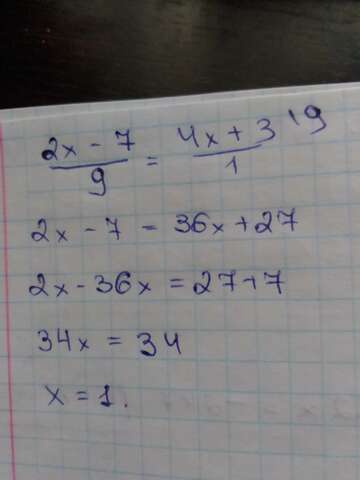 (2x - 7)/9 = (4x + 3)/1 '9
2x - 7 = 36x + 27
2x - 36x = 27+7
34x = 34
x = 1.